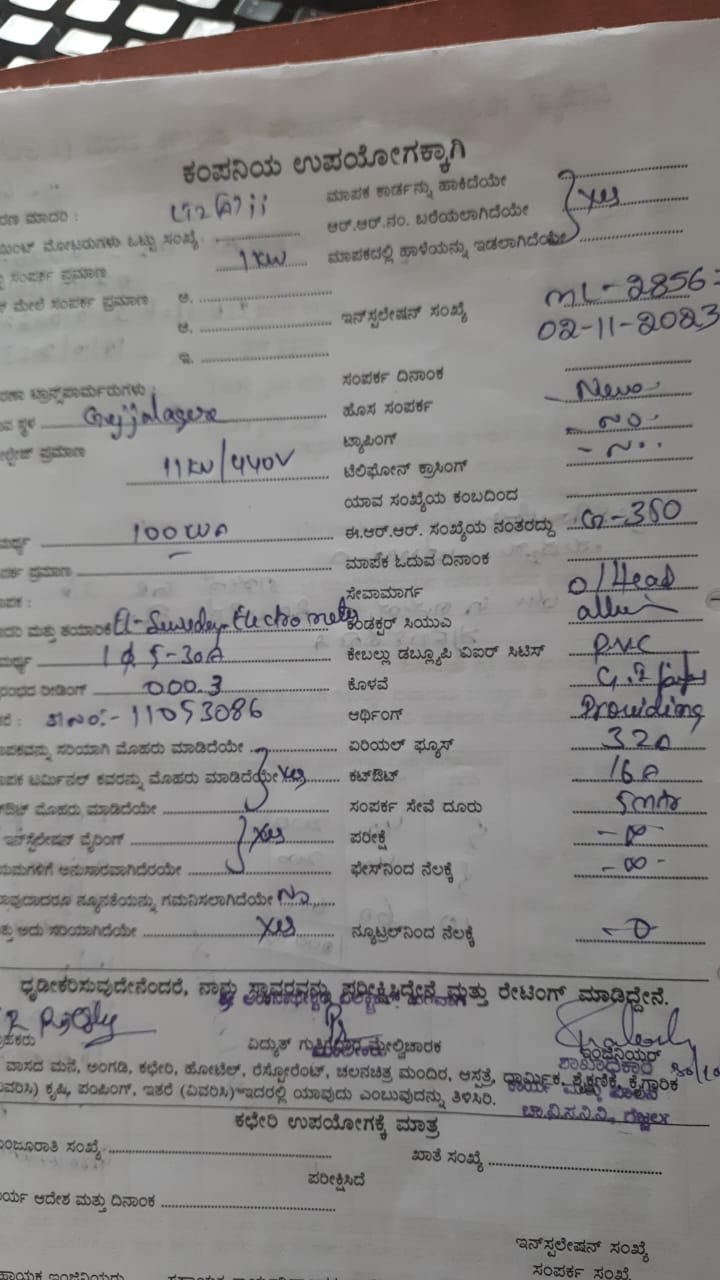 ಕಂಪನಿಯ ಉಪಯೋಗಕ್ಕಾಗಿ
ರಣ ಮಾದರಿ : LT2(A)ii ಮಾಪಕ ಕಾರ್ಡನ್ನು ಹಾಕಿದೆಯೇ
ಮೋಟರುಗಳು ಒಟ್ಟು ಸಂಖ್ಯೆ ಆರ್.ಆರ್.ನಂ. ಬರೆಯಲಾಗಿದೆಯೇ Yes
ಸಂಪರ್ಕ ಪ್ರಮಾಣ 1 KW ಮಾಪಕದಲ್ಲಿ ಹಾಳೆಯನ್ನು ಇಡಲಾಗಿದೆಯೇ
ಮೇಲೆ ಸಂಪರ್ಕ ಪ್ರಮಾಣ ಅ.
ಆ. ಇನ್‌ಸ್ಪಲೇಷನ್ ಸಂಖ್ಯೆ ML-2856-
02-11-2023
ಇ.
ಟ್ರಾನ್ಸ್‌ಫಾರ್ಮರುಗಳು : ಸಂಪರ್ಕ ದಿನಾಂಕ
ಸ್ಥಳ Gejjalagere ಹೊಸ ಸಂಪರ್ಕ New
ಪ್ರಮಾಣ 11KV/440V ಟ್ಯಾಪಿಂಗ್ - NO -
ಟೆಲಿಫೋನ್ ಕ್ರಾಸಿಂಗ್ - NO -
ಯಾವ ಸಂಖ್ಯೆಯ ಕಂಬದಿಂದ
100 ಈ.ಆರ್.ಆರ್. ಸಂಖ್ಯೆಯ ನಂತರದ್ದು G-350
ಪ್ರಮಾಣ ಮಾಪಕ ಓದುವ ದಿನಾಂಕ
ಸೇವಾಮಾರ್ಗ O/Head
ಮತ್ತು ತಯಾರಿಕೆ El-Sewedy Electrometer ಕಂಡಕ್ಟರ್ ಸಿಯುಎ
1ϕ 5-30A ಕೇಬಲ್ಲು ಡಬ್ಲ್ಯೂಪಿ ವಿಐರ್ ಸಿಟಿಸ್ PVC
ರೀಡಿಂಗ್ 000.3 ಕೊಳವೆ G.I
11053086 ಆರ್ಥಿಂಗ್ Providing
ಪಕವನ್ನು ಸರಿಯಾಗಿ ಮೊಹರು ಮಾಡಿದೆಯೇ ಏರಿಯಲ್ ಫ್ಯೂಸ್ 32A
ಪಕ ಟರ್ಮಿನಲ್ ಕವರನ್ನು ಮೊಹರು ಮಾಡಿದೆಯೇ Yes ಕಟ್‌ಔಟ್ 16A
ಮೊಹರು ಮಾಡಿದೆಯೇ ಸಂಪರ್ಕ ಸೇವೆ ದೂರು 5mtr
ಇನ್‌ಸ್ಪಲೇಷನ್ ವೈರಿಂಗ್ Yes ಪರೀಕ್ಷೆ - ∞ -
ಅನುಸಾರವಾಗಿದೆಯೇ ಫೇಸ್‌ನಿಂದ ನೆಲಕ್ಕೆ - ∞ -
ನ್ಯೂನತೆಯನ್ನು ಗಮನಿಸಲಾಗಿದೆಯೇ No
ಅದು ಸರಿಯಾಗಿದೆಯೇ Yes ನ್ಯೂಟ್ರಲ್‌ನಿಂದ ನೆಲಕ್ಕೆ - 0
ಧೃಡೀಕರಿಸುವುದೇನೆಂದರೆ, ನಾನು ಸ್ಥಾವರವನ್ನು ಪರೀಕ್ಷಿಸಿದ್ದೇನೆ ಮತ್ತು ರೇಟಿಂಗ್ ಮಾಡಿದ್ದೇನೆ.
ವಿದ್ಯುತ್ ಗುತ್ತಿಗೆದಾರ ಮೇಲ್ವಿಚಾರಕ ಇಂಜಿನಿಯರ್
ಶಾಖಾಧಿಕಾರಿ
ವಾಸದ ಮನೆ, ಅಂಗಡಿ, ಕಛೇರಿ, ಹೋಟೆಲ್, ರೆಸ್ಟೋರೆಂಟ್, ಚಲನಚಿತ್ರ ಮಂದಿರ, ಆಸ್ಪತ್ರೆ, ಧಾರ್ಮಿಕ, ಶೈಕ್ಷಣಿಕ, ಕೈಗಾರಿಕೆ
ಕೃಷಿ, ಪಂಪಿಂಗ್, ಇತರೆ (ವಿವರಿಸಿ) ಇದರಲ್ಲಿ ಯಾವುದು ಎಂಬುವುದನ್ನು ತಿಳಿಸಿರಿ.
ಚಾ.ವಿ.ಸ.ನಿ.ನಿ,
ಕಛೇರಿ ಉಪಯೋಗಕ್ಕೆ ಮಾತ್ರ
ಂಜೂರಾತಿ ಸಂಖ್ಯೆ ಖಾತೆ ಸಂಖ್ಯೆ
ಪರೀಕ್ಷಿಸಿದೆ
ರ್ಯ ಆದೇಶ ಮತ್ತು ದಿನಾಂಕ
ಇನ್‌ಸ್ಪಲೇಷನ್ ಸಂಖ್ಯೆ
ಸಂಪರ್ಕ ಸಂಖ್ಯೆ